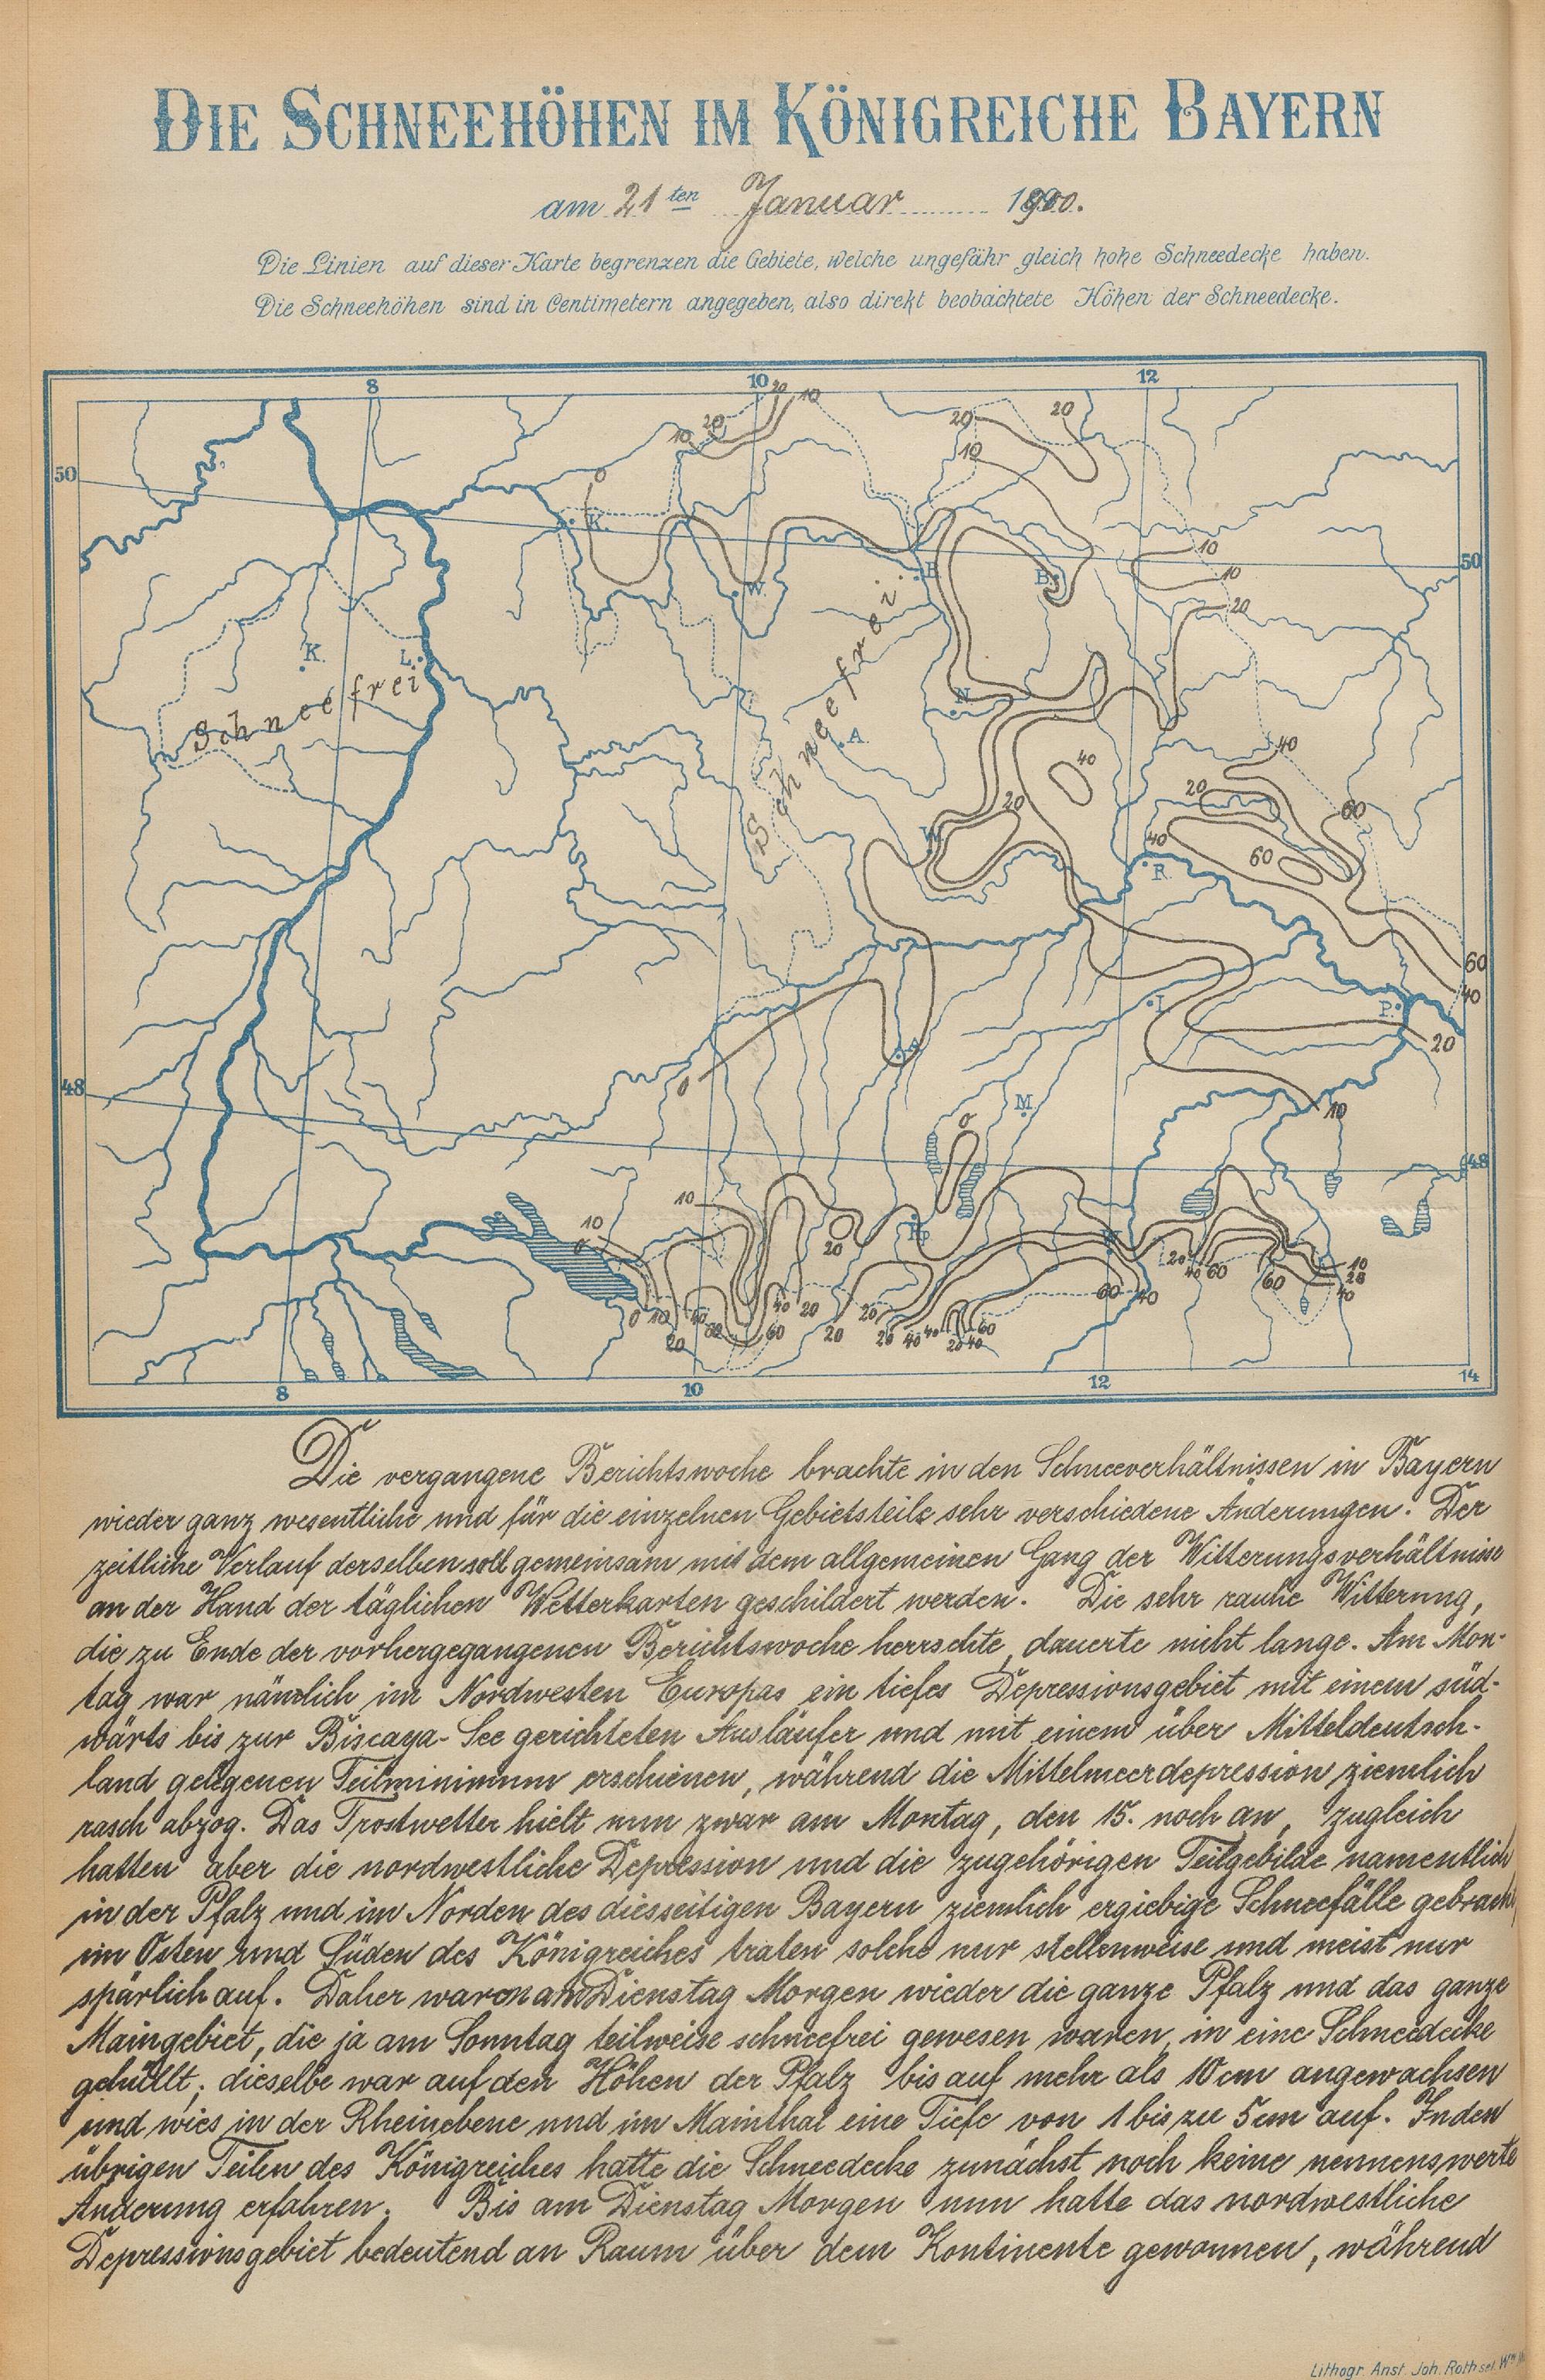 DIE SCHNEEHÖHEN IM KÖNIGREICHE BAYERN
am 21ten Januar 1900.
Die Linien auf dieser Karte begrenzen die Gebiete, welche ungefähr gleich hohe Schneedecke haben.
Die Schneehöhen sind in Centimetern angegeben, also direkt beobachtete Höhen der Schneedecke.
8 10 12
20 10
20 10 20 20
10
50
0
K.
10 50
B. B. 10
W. 20
K. L.
Schneefrei
Schneefrei
N.
A.
40 40
20 20 60
W. 40 60
R.
60
40
I. P.
20
A.
0
48
M. 10
0
48
10 10
0
20 Pp.
20 40 60 60 10 20 40
0 10 40 60 40 20 60 20 20 20 40 40 20 40 60 60 40
20
8 10 12 14
Die vergangene Berichtswoche brachte in den Schneeverhältnissen in Bayern
wieder ganz wesentliche und für die einzelnen Gebietsteile sehr verschiedene Änderungen. Der
zeitliche Verlauf derselben soll gemeinsam mit dem allgemeinen Gang der Witterungsverhältnisse
an der Hand der täglichen Wetterkarten geschildert werden. Die sehr rauhe Witterung,
die zu Ende der vorhergegangenen Berichtswoche herrschte, dauerte nicht lange. Am Mon-
tag war nämlich im Nordwesten Europas ein tiefes Depressionsgebiet mit einem süd-
wärts bis zur Biscaya-See gerichteten Ausläufer und mit einem über Mitteldeutsch-
land gelegenen Teilminimum erschienen, während die Mittelmeerdepression ziemlich
rasch abzog. Das Frostwetter hielt nun zwar am Montag, den 15. noch an, zugleich
hatten aber die nordwestliche Depression und die zugehörigen Teilgebilde namentlich
in der Pfalz und im Norden des diesseitigen Bayern ziemlich ergiebige Schneefälle gebracht,
im Osten und Süden des Königreiches traten solche nur stellenweise und meist nur
spärlich auf. Daher waren am Dienstag Morgen wieder die ganze Pfalz und das ganze
Maingebiet, die ja am Sonntag teilweise schneefrei gewesen waren, in eine Schneedecke
gehüllt; dieselbe war auf den Höhen der Pfalz bis auf mehr als 10 cm angewachsen
und wies in der Rheinebene und im Mainthal eine Tiefe von 1 bis zu 5 cm auf. In den
übrigen Teilen des Königreiches hatte die Schneedecke zunächst noch keine nennenswerte
Änderung erfahren. Bis am Dienstag Morgen nun hatte das nordwestliche
Depressionsgebiet bedeutend an Raum über dem Kontinente gewonnen, während
Lithogr. Anst. Joh. Roth sel. Ww.